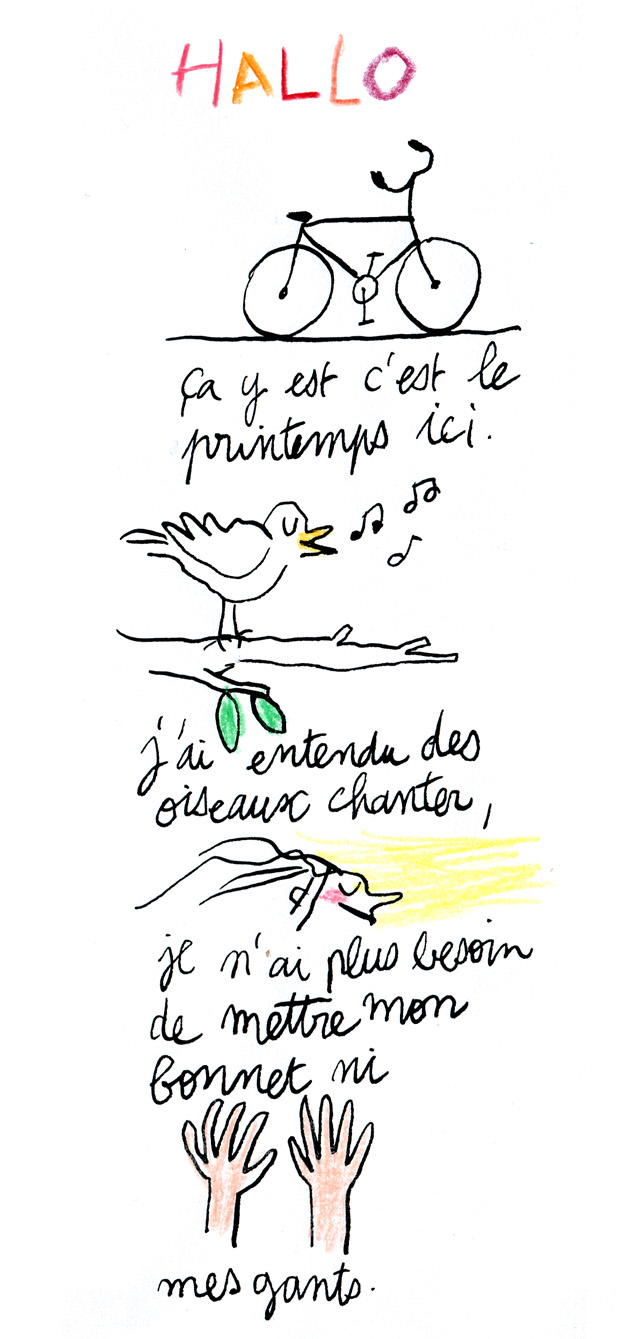 HALLO
ça y est c'est le
printemps ici.
j'ai entendu des
oiseaux chanter,
je n'ai plus besoin
de mettre mon
bonnet ni
mes gants.